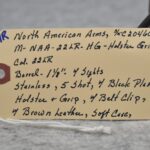 North American Arms,
M- NAA-22LR-HG-Holster Grip
Cal. 22LR
Barrel- 1⅛" 4 Sights
Stainless, 5 Shot, 4 Black
Holster + Grip, 4 Belt Clip,
4 Brown Leather, Soft Case,